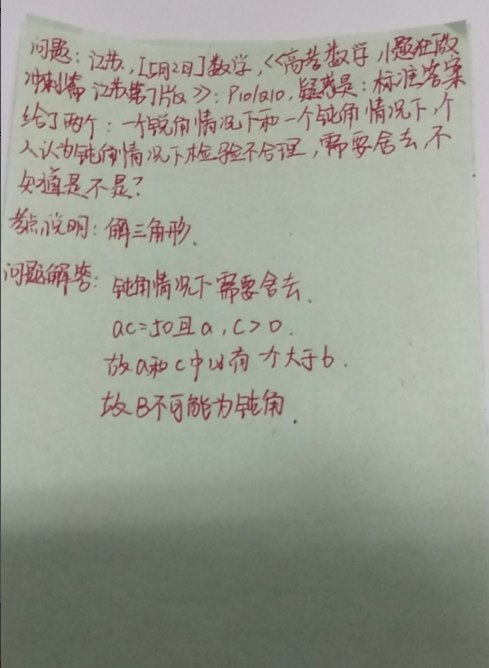 问题：江苏，[5月2日]数学，《高考数学小题狂做
冲刺篇 江苏第7版》：P10/Q10，疑惑是：标准答案
给了两个：一个锐角情况下和一个钝角情况下，个
人认为钝角情况下检验不合理，需要舍去，不
知道是不是？
考点说明：解三角形、
问题解答：钝角情况下需要舍去、
ac=50且a,c>0.
故a和c中必有一个大于b.
故B不可能为钝角.